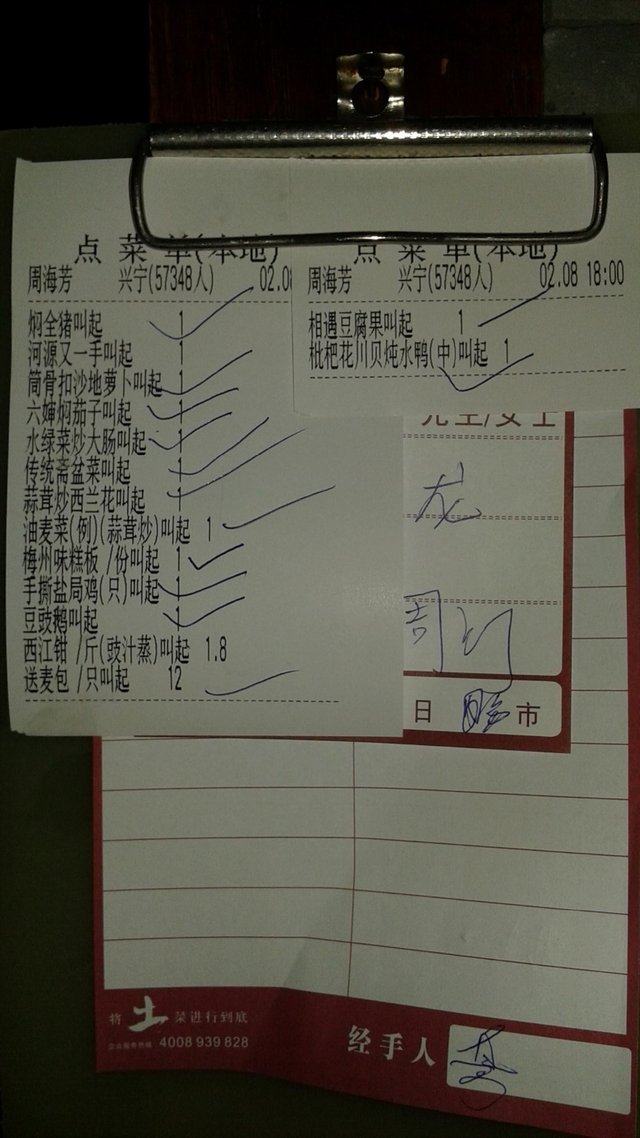 点菜单(本地)
周海芳 兴宁(57348人) 02.0
焖全猪叫起 1
河源又一手叫起 1
筒骨扣沙地萝卜叫起 1
六婶焖茄子叫起 1
水绿菜炒大肠叫起 1
传统斋盆菜叫起 1
蒜茸炒西兰花叫起 1
油麦菜(例)(蒜茸炒)叫起 1
梅州味糕板 /份叫起 1
手撕盐局鸡(只)叫起 1
豆豉鹅叫起 1
西江钳 /斤(豉汁蒸)叫起 1.8
送麦包 /只叫起 12
点菜单(本地)
周海芳 兴宁(57348人) 02.08 18:00
相遇豆腐果叫起 1
枇杷花川贝炖水鸭(中)叫起 1
先生/女士
龙
日 市
将土菜进行到底
企业服务热线 4008 939 828
经手人